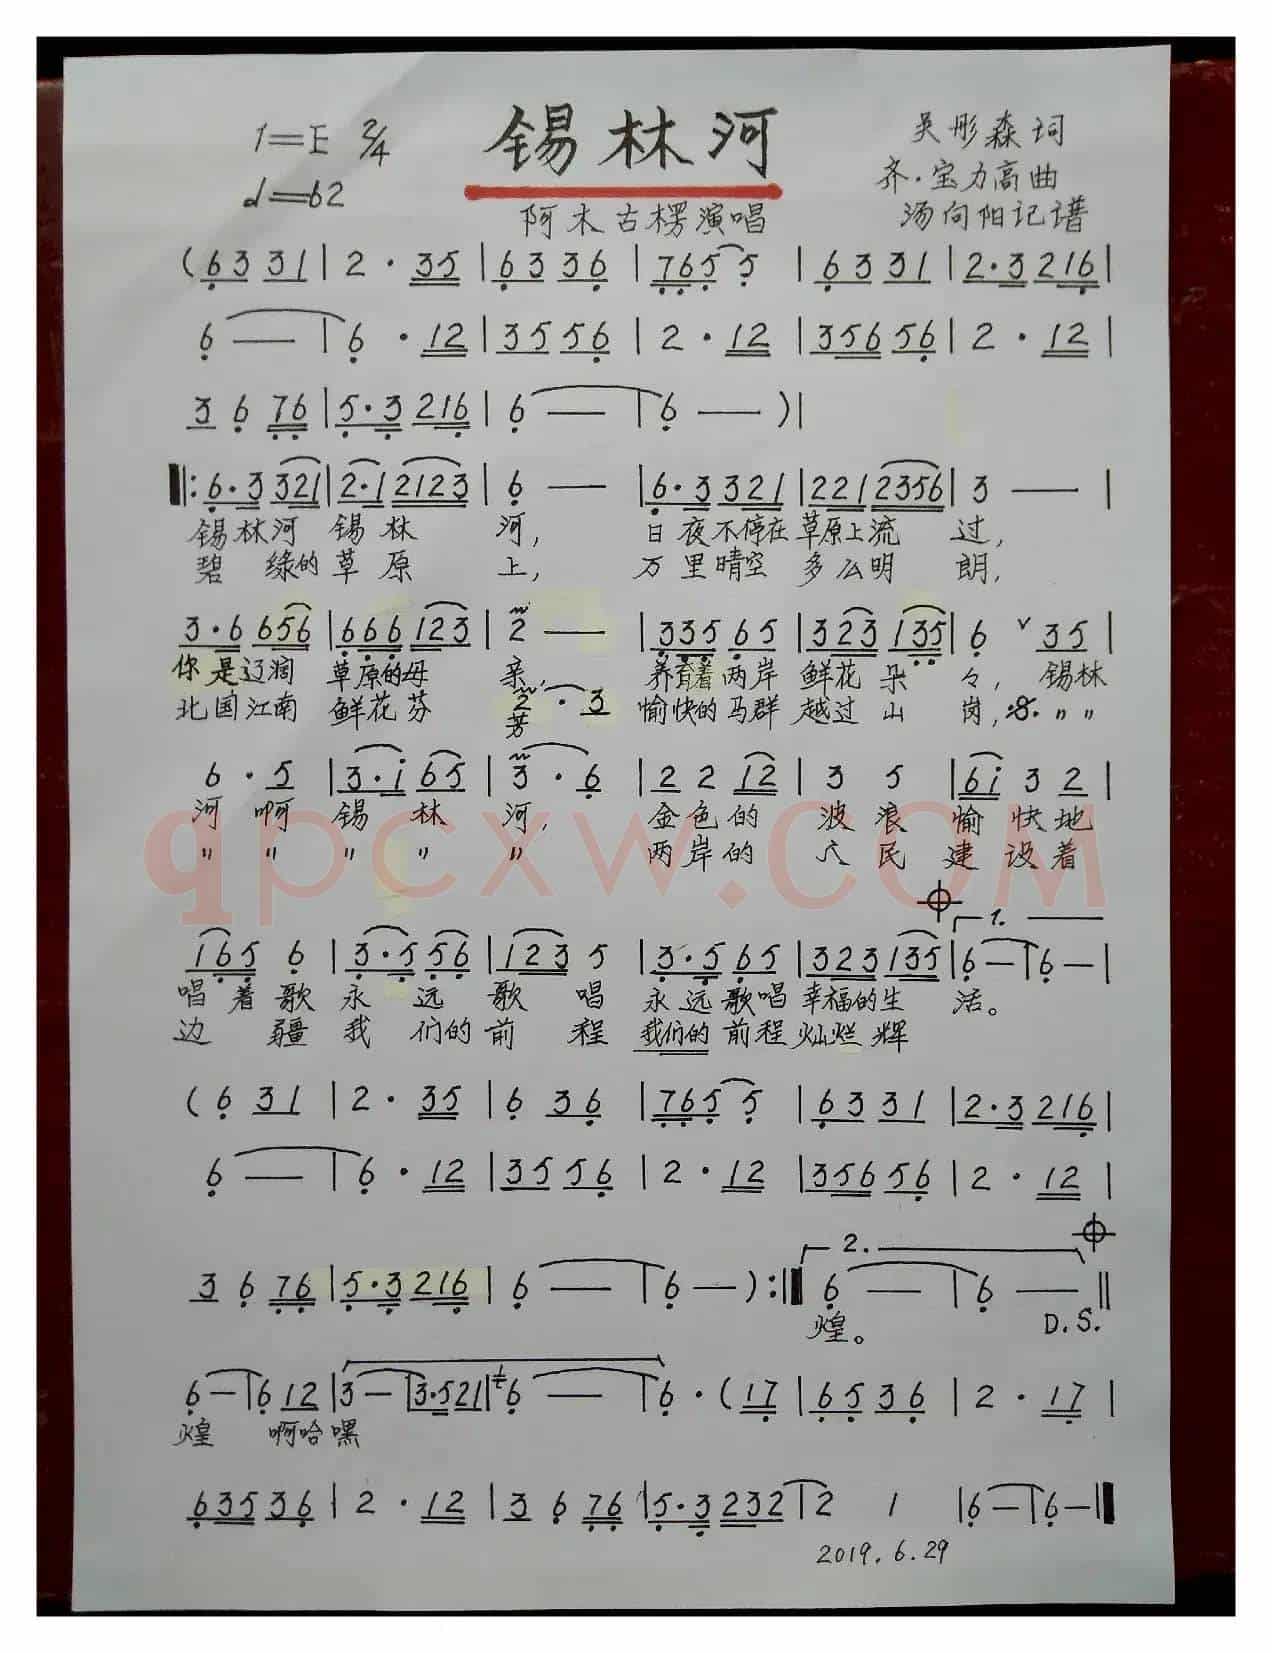 锡林河
1=E 2/4
♩=62
吴彤森词
齐·宝力高曲
汤向阳记谱
阿木古楞演唱
(6 3 3 1 | 2 · 3 5 | 6 3 3 6 | 7 6 5 5 | 6 3 3 1 | 2 · 3 2 1 6 |
6 — | 6 · 1 2 | 3 5 5 6 | 2 · 1 2 | 3 5 6 5 6 | 2 · 1 2 |
3 6 7 6 | 5 · 3 2 1 6 | 6 — | 6 — ) |
‖: 6 · 3 3 2 1 | 2 · 1 2 1 2 3 | 6 — | 6 · 3 3 2 1 | 2 2 1 2 3 5 6 | 3 — |
锡林河 锡林 河, 日夜不停在草原上流 过,
碧 绿的草原 上, 万里晴空 多么明 朗,
3 · 6 6 5 6 | 6 6 6 1 2 3 | 2 — | 3 3 5 6 5 | 3 2 3 1 3 5 | 6 ∨ 3 5 |
你是辽阔 草原的母 亲, 养育着两岸 鲜花朵 々, 锡林
2 · 3
北国江南 鲜花芬 芳 愉快的马群 越过山 岗, 𝄋 〃 〃
6 · 5 | 3 · i 6 5 | 3 · 6 | 2 2 1 2 | 3 5 | 6 i 3 2 |
河 啊 锡 林 河, 金色的 波浪 愉快地
〃 〃 〃 〃 〃 两岸的 人民 建设着
1.
1 6 5 6 | 3 · 5 5 6 | 1 2 3 5 | 3 · 5 6 5 | 3 2 3 1 3 5 | 6 — | 6 — |
唱着歌 永 远 歌 唱 永远歌唱 幸福的生 活。
边 疆 我 们的前 程 我们的前程灿烂辉
( 6 3 1 | 2 · 3 5 | 6 3 6 | 7 6 5 5 | 6 3 3 1 | 2 · 3 2 1 6 |
6 — | 6 · 1 2 | 3 5 5 6 | 2 · 1 2 | 3 5 6 5 6 | 2 · 1 2 |
2.
3 6 7 6 | 5 · 3 2 1 6 | 6 — | 6 — ) :‖ 6 — | 6 — ‖
煌。 D.S.
6 — | 6 1 2 | 3 — | 3 · 5 2 1 | 6 — | 6 · ( 1 7 | 6 5 3 6 | 2 · 1 7 |
煌 啊哈嘿
6 3 5 3 6 | 2 · 1 2 | 3 6 7 6 | 5 · 3 2 3 2 | 2 1 | 6 — | 6 — ‖
2019.6.29
qpcxw.COM